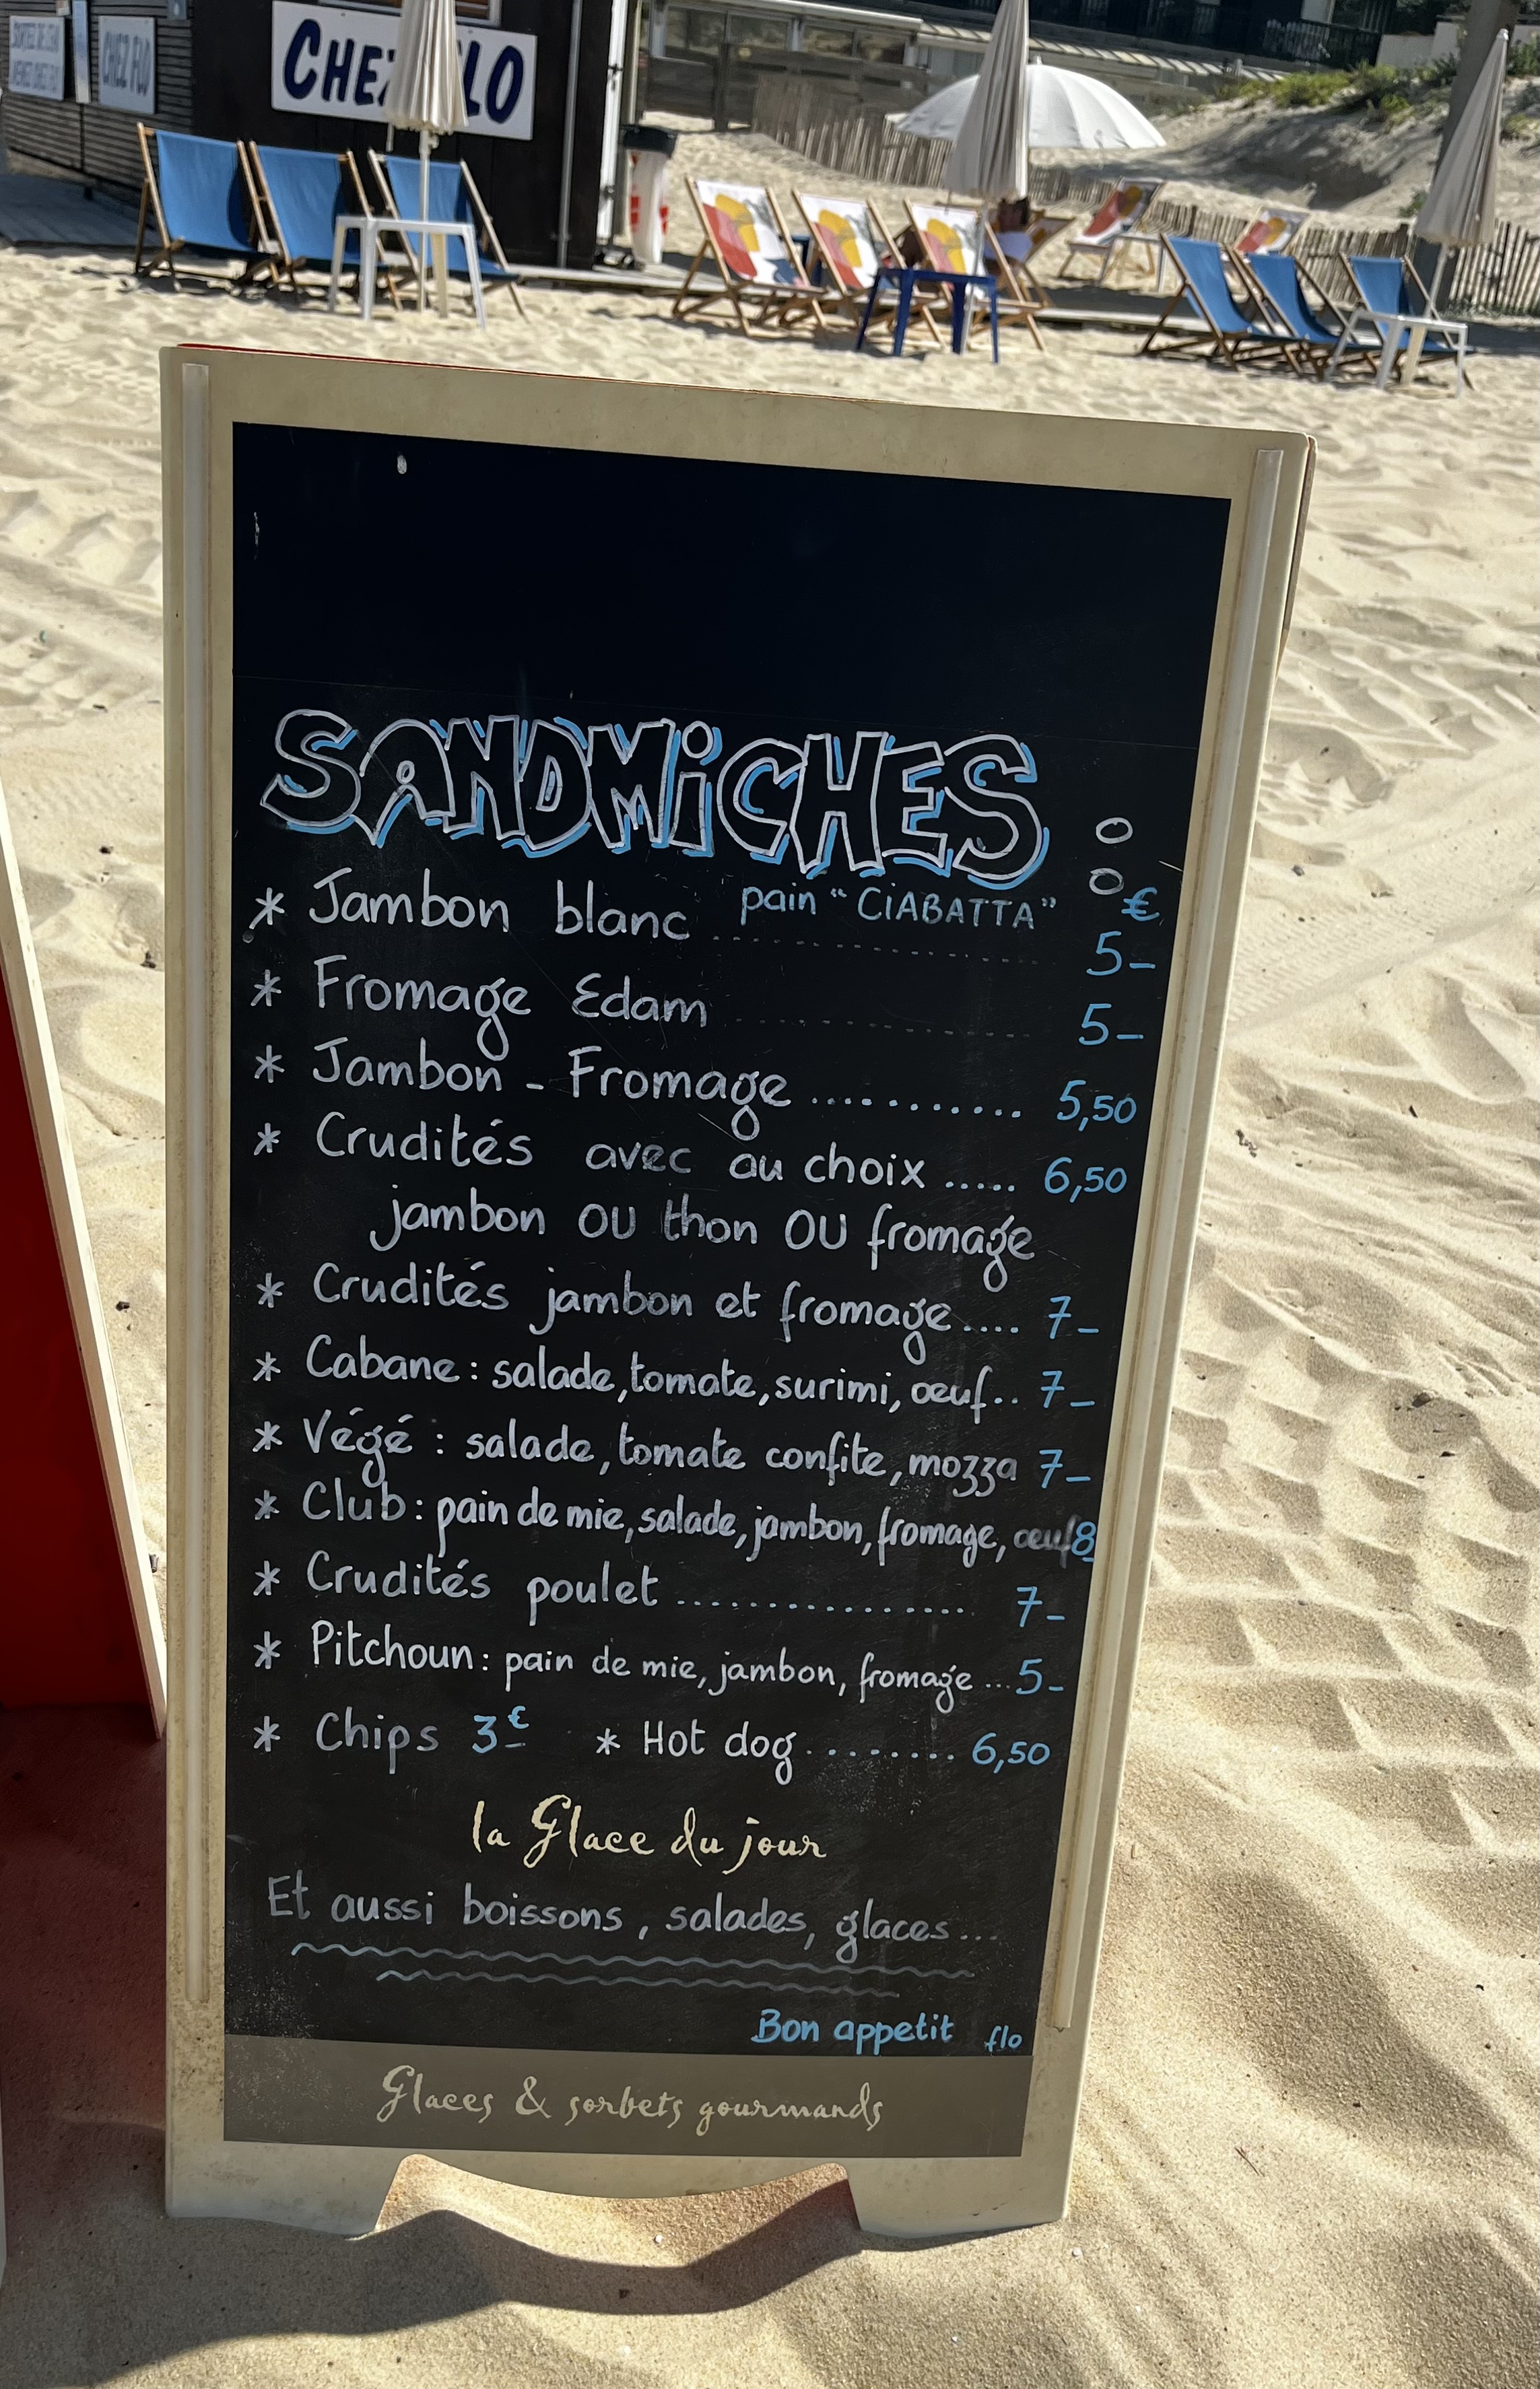 CHEZ FLO
CHEZ FLO
SANDWICHES :
pain "CiABATTA" €
* Jambon blanc .............. 5-
* Fromage Edam .............. 5-
* Jambon - Fromage ........... 5,50
* Crudités avec au choix ..... 6,50
jambon OU thon OU fromage
* Crudités jambon et fromage .... 7-
* Cabane : salade, tomate, surimi, oeuf.. 7-
* Végé : salade, tomate confite, mozza 7-
* Club : pain de mie, salade, jambon, fromage, oeuf 8-
* Crudités poulet ................. 7-
* Pitchoun : pain de mie, jambon, fromage ... 5-
* Chips 3€ * Hot dog ......... 6,50
la Glace du jour
Et aussi boissons, salades, glaces...
Bon appetit flo
Glaces & sorbets gourmands